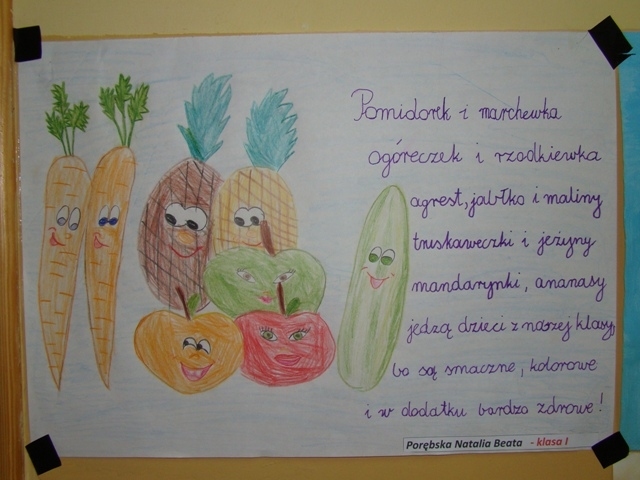 Pomidorek i marchewka
ogóreczek i rzodkiewka
agrest, jabłko i maliny
truskaweczki i jeżyny
mandarynki, ananasy
jedzą dzieci z naszej klasy,
bo są smaczne, kolorowe
i w dodatku bardzo zdrowe!
Porębska Natalia Beata - klasa I